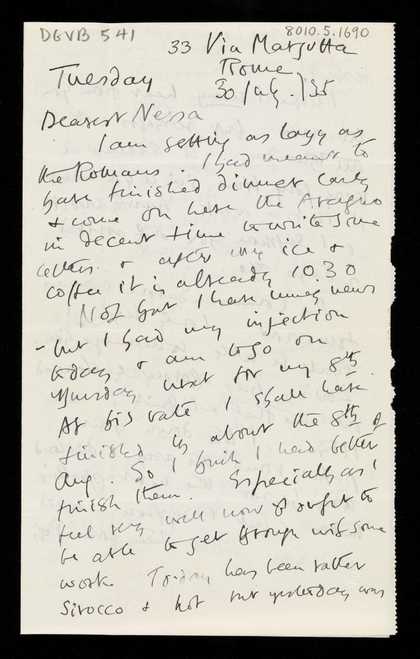 DGVB 541
8010.5.1690
33 Via Margutta
Rome
Tuesday
30 July /35
Dearest Nessa
I am getting as lazy as
the Romans. I had meant to
have finished dinner early
& come on here the Aragno
in decent time to write some
letters & after my ice &
coffee it is already 10.30
Not that I have much news
- but I had my injection
today & am to go on
Thursday next for my 8th.
At this rate I shall have
finished by about the 8th of
Aug So I think I had better
finish them. Especially as I
feel very well now & ought to
be able to get through with some
work. Today has been rather
Sirocco & hot but yesterday was